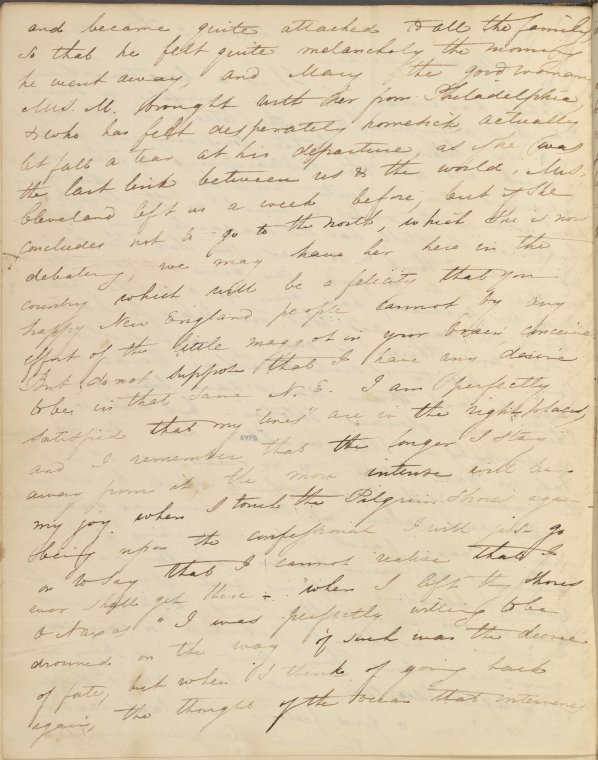 and became quite attached to all the family
so that he felt quite melancholy the morning
he went away, and Mary "the good woman
Mrs. M. brought with her from Philadelphia,
& who has felt desperately homesick, actually
let fall a tear at his departure, as she was
the last link between us & the world. Mrs.
Cleveland left us a week before, but if she
concludes not to go to the North, which she is now
debating, we may have her here in the
country which will be a felicity that you
happy New England people cannot by any
effort of the little maggot in your brain, conceive
But do not suppose that I have any desire
to be in that same N. E. I am perfectly
satisfied that my "lines" are in the right places,
NYPL
and I remember that the longer I stay
away from it, the more intense will be
my joy when I touch the Pilgrim Shores again
being upon the confessional I will just go
on to say that I cannot realize that I
ever shall get there - "when I left thy shores
O Naxos" I was perfectly willing to be
drowned on the way if such was the decree
of fate, but when I think of going back
again, the thought of the ocean that intervenes